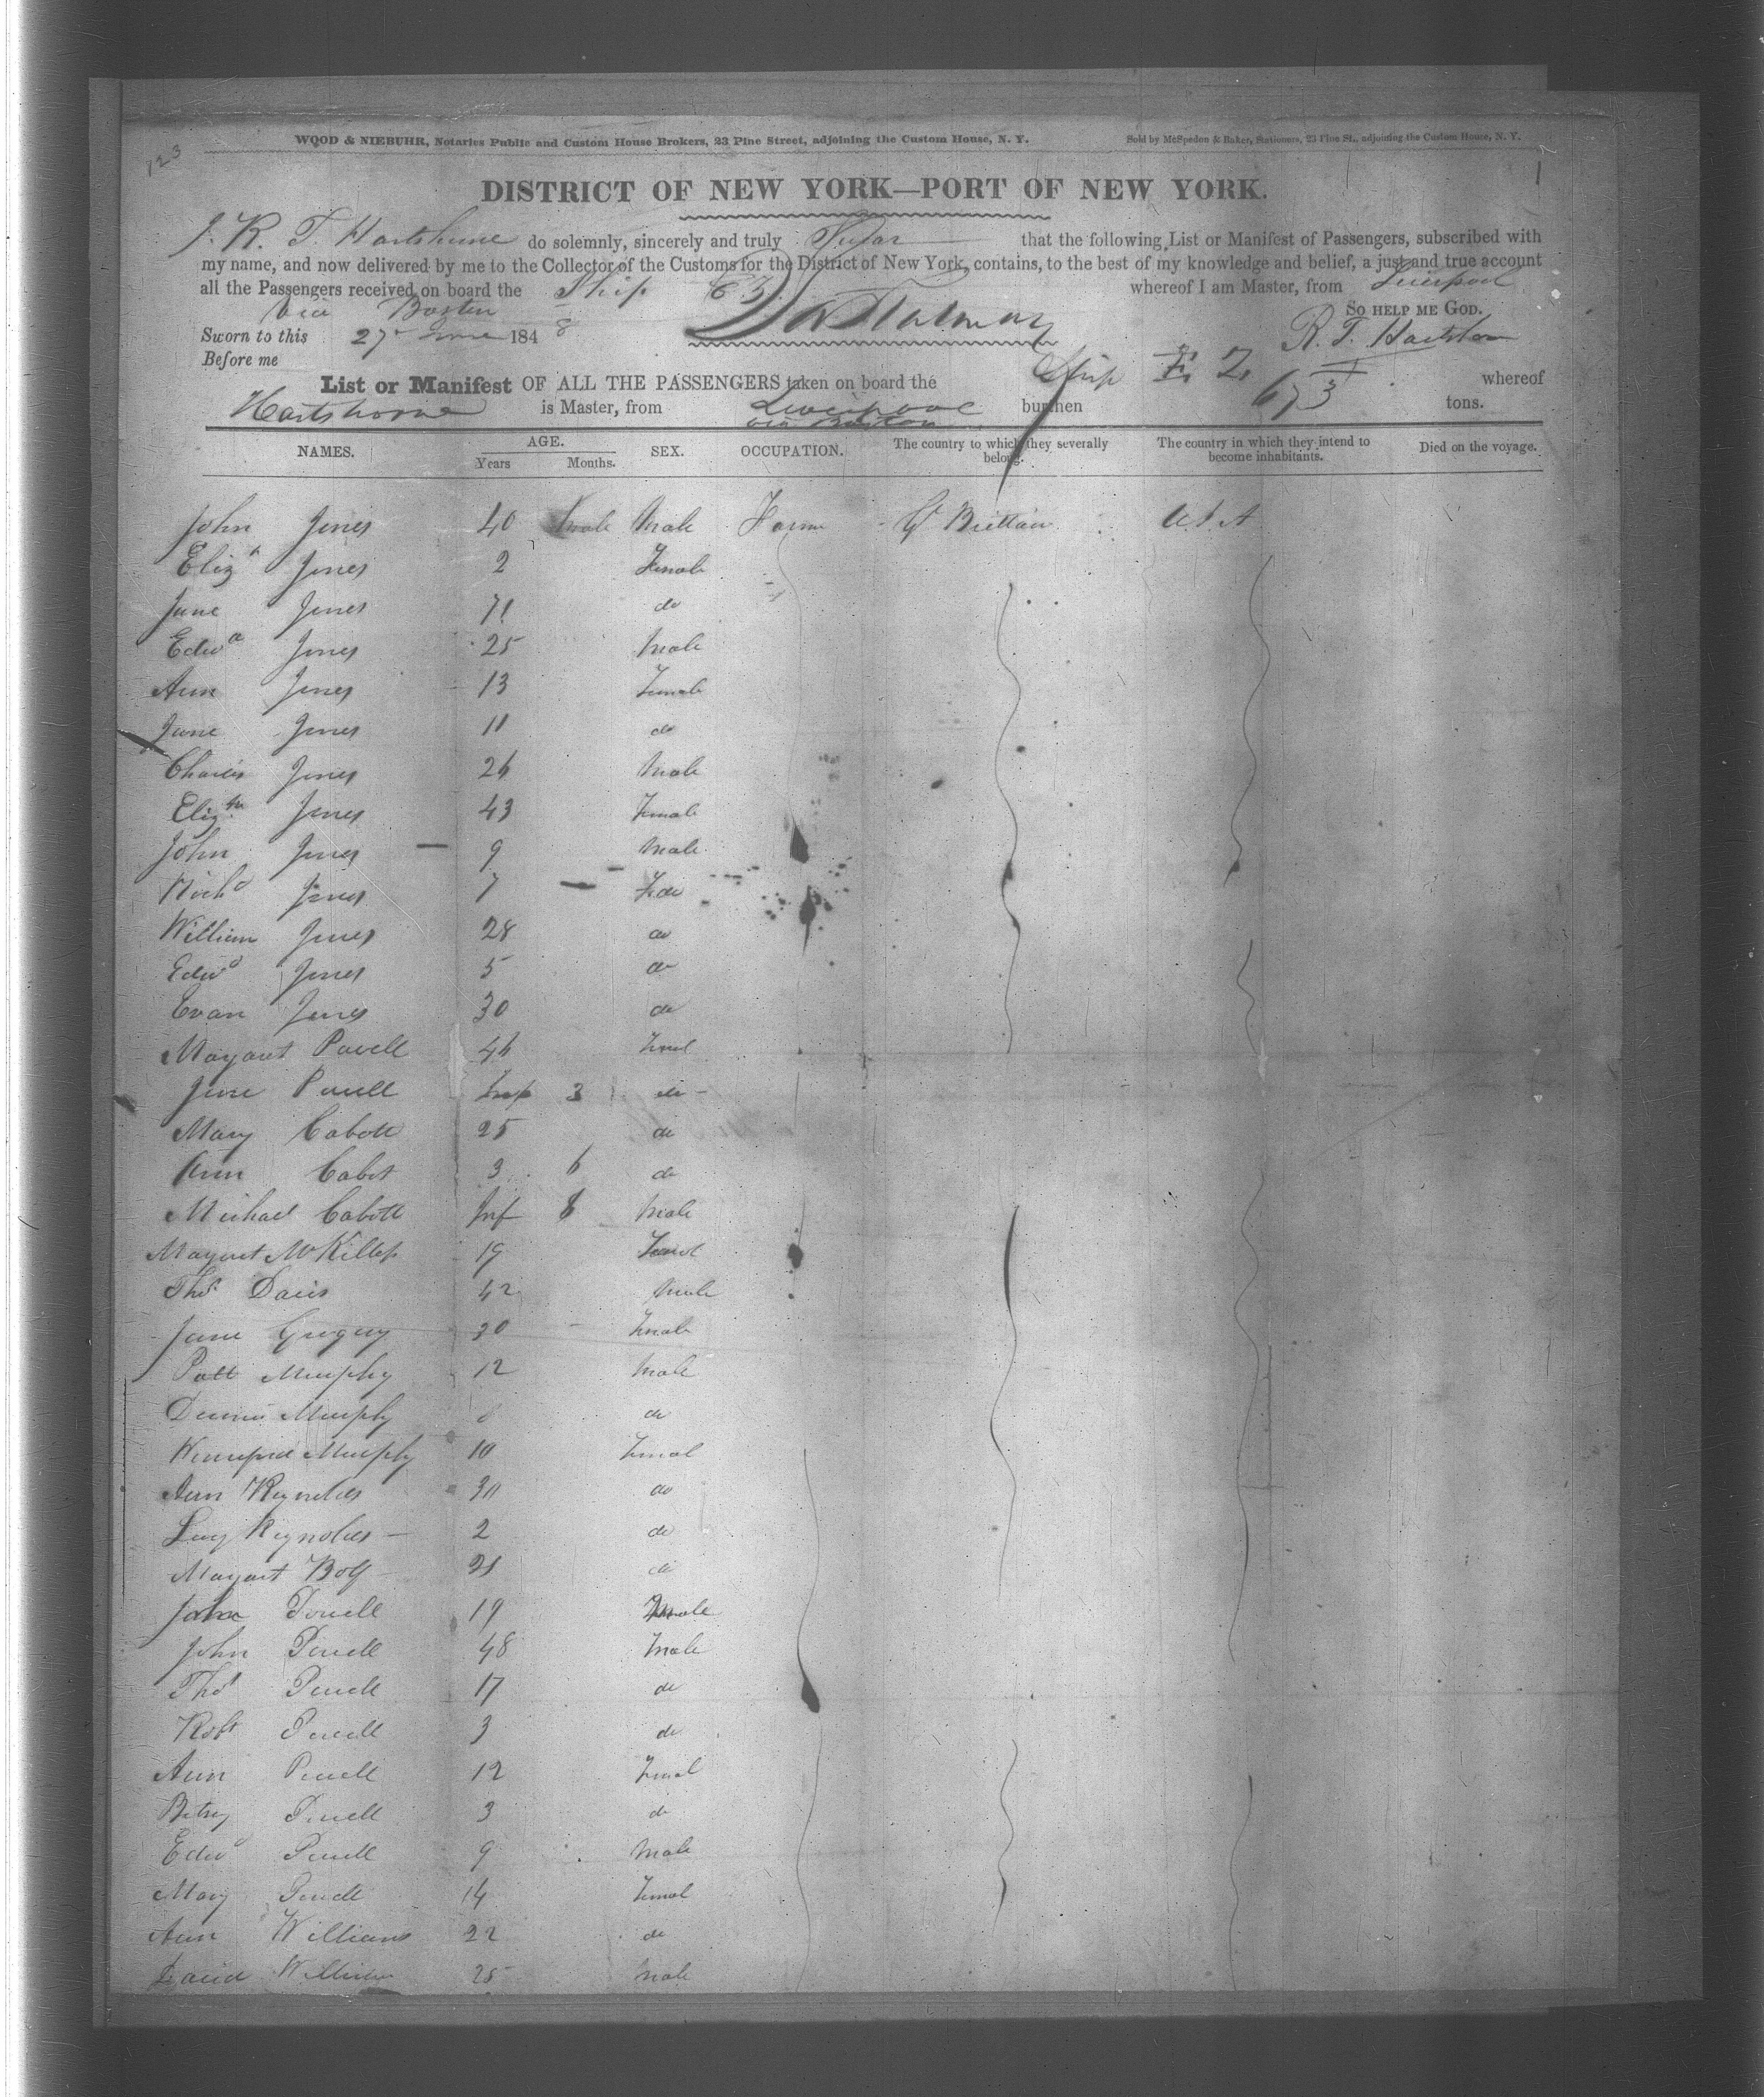 123
WOOD & NIEBUHR, Notaries Public and Custom House Brokers, 23 Pine Street, adjoining the Custom House, N. Y. Sold by McSpedon & Baker, Stationers, 23 Pine St., adjoining the Custom House, N. Y.
1
DISTRICT OF NEW YORK—PORT OF NEW YORK.
I. R. T. Hartshorne do solemnly, sincerely and truly Swear that the following List or Manifest of Passengers, subscribed with
my name, and now delivered by me to the Collector of the Customs for the District of New York, contains, to the best of my knowledge and belief, a just and true account
all the Passengers received on board the Ship E Z whereof I am Master, from Liverpool
via Boston SO HELP ME GOD.
Sworn to this 27 June 1848 R. T. Hartshorne
Before me
List or Manifest OF ALL THE PASSENGERS taken on board the Ship E Z whereof
Hartshorne is Master, from Liverpool burthen 673 tons.
via Boston
NAMES. AGE. SEX. OCCUPATION. The country to which they severally belong. The country in which they intend to become inhabitants. Died on the voyage.
Years Months.
John Jones 40 Male Male Farm Gt Brittain U.S.A
Eliz h Jones 2 Female
Jane Jones 71 do
Edwd Jones 25 Male
Ann Jones 13 Female
Jane Jones 11 do
Charles Jones 26 Male
Elizth Jones 43 Female
John Jones 9 Male
Richd Jones 7 do
William Jones 28 do
Edwd Jones 5 do
Evan Jones 30 do
Margaret Powell 46 Femal
Jane Powell Inf 3 do
Mary Cabott 25 do
Ann Cabot 3 6 do
Michael Cabott Inf 8 Male
Margaret McKillop 19 Femal
Thos Davis 42 Male
Jane Gregory 30 Female
Patt Murphy 12 Male
Dennis Murphy 8 do
Winnifred Murphy 10 Femal
Ann Reynolds 30 do
Lucy Reynolds 2 do
Margaret 21 do
Powell 19 Female
John Powell 48 Male
Thos Powell 17 do
Robt Powell 3 do
Ann Powell 12 Femal
Betsy Powell 3 do
Edwd Powell 9 Male
Mary Powell 14 Femal
Ann Williams 22 do
David Williams 25 Male